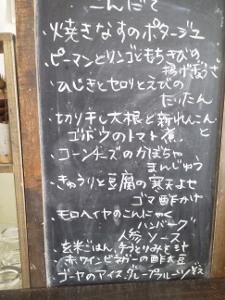 こんだて
・焼きなすのポタージュ
・ピーマンとリンゴともちきびの
揚げぎょうざ
・ひじきとセロリとえびの
たいたん
・切り干し大根と新れんこんと
ゴボウのトマト煮
・コーンチーズのかぼちゃ
まんじゅう
・きゅうりと豆腐の寒天よせ
ゴマ酢かけ
・モロヘイヤのこんにゃく
ハンバーグ
人参ソース
・玄米ごはん、
・赤ワインビネガーの酢大豆
・ゴーヤのアイス、グレープフルーツ